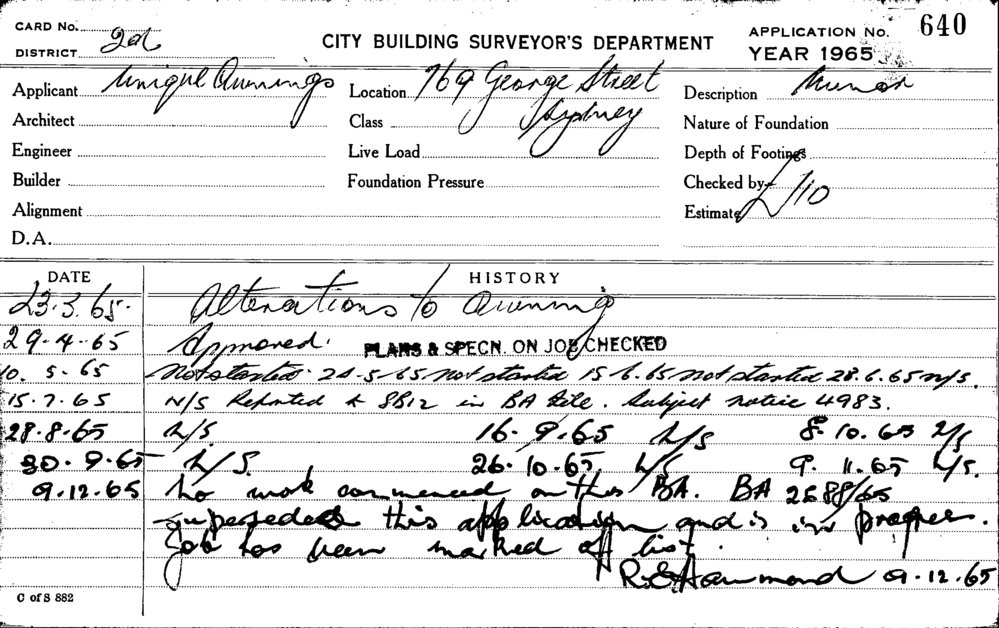 CARD No.
DISTRICT 2nd
CITY BUILDING SURVEYOR'S DEPARTMENT
APPLICATION No. 640
YEAR 1965
Applicant Unique Awnings
Location 769 George Street
Sydney
Description Minor
Architect
Class
Nature of Foundation
Engineer
Live Load
Depth of Footings
Builder
Foundation Pressure
Checked by
Alignment
Estimate £110
D.A.
DATE
HISTORY
23.3.65. Alterations to Awning
29.4.65 Approved. PLANS & SPECN. ON JOB CHECKED
10.5.65 Not started. 24-5-65 not started 15.6.65 not started 28.6.65 n/s.
15.7.65 N/S Reported to SB12 in BA file. Subject notice 4983.
28.8.65 N/S. 16.9.65 N/S 8.10.65 N/S
30.9.65 N/S. 26.10.65 N/S 9.11.65 N/S.
9.12.65 No work commenced on this BA. BA 2588/65
supersedes this application and is in progress.
Job has been marked off list.
R.E. Hammond 9.12.65
C of S 882